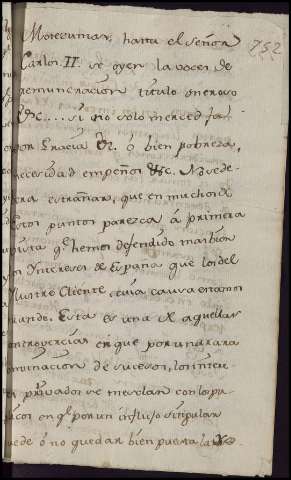 752
Motezumas, hasta el Señor
Carlos II se oyen la voces de
remuneracion titulo oneroso
&c.... si no solo merced, fa-
vor, Gracia &c. ó bien pobreza,
necesidad empeños &c. No se de-
vera estrañar, que en muchos de
estos puntos parezca á primera
vista q.e hemos defendido mas bien
los Yntereses de España que los del
Nuestro Cliente, cuia causa estamos
. Esta es una de aquellas
controvercias en que por una rara
convinacion de sucesos, los inter-
es privados se mesclan con los pu-
blicos en q.e por un influjo singular
puede ó no quedar bien puesta la